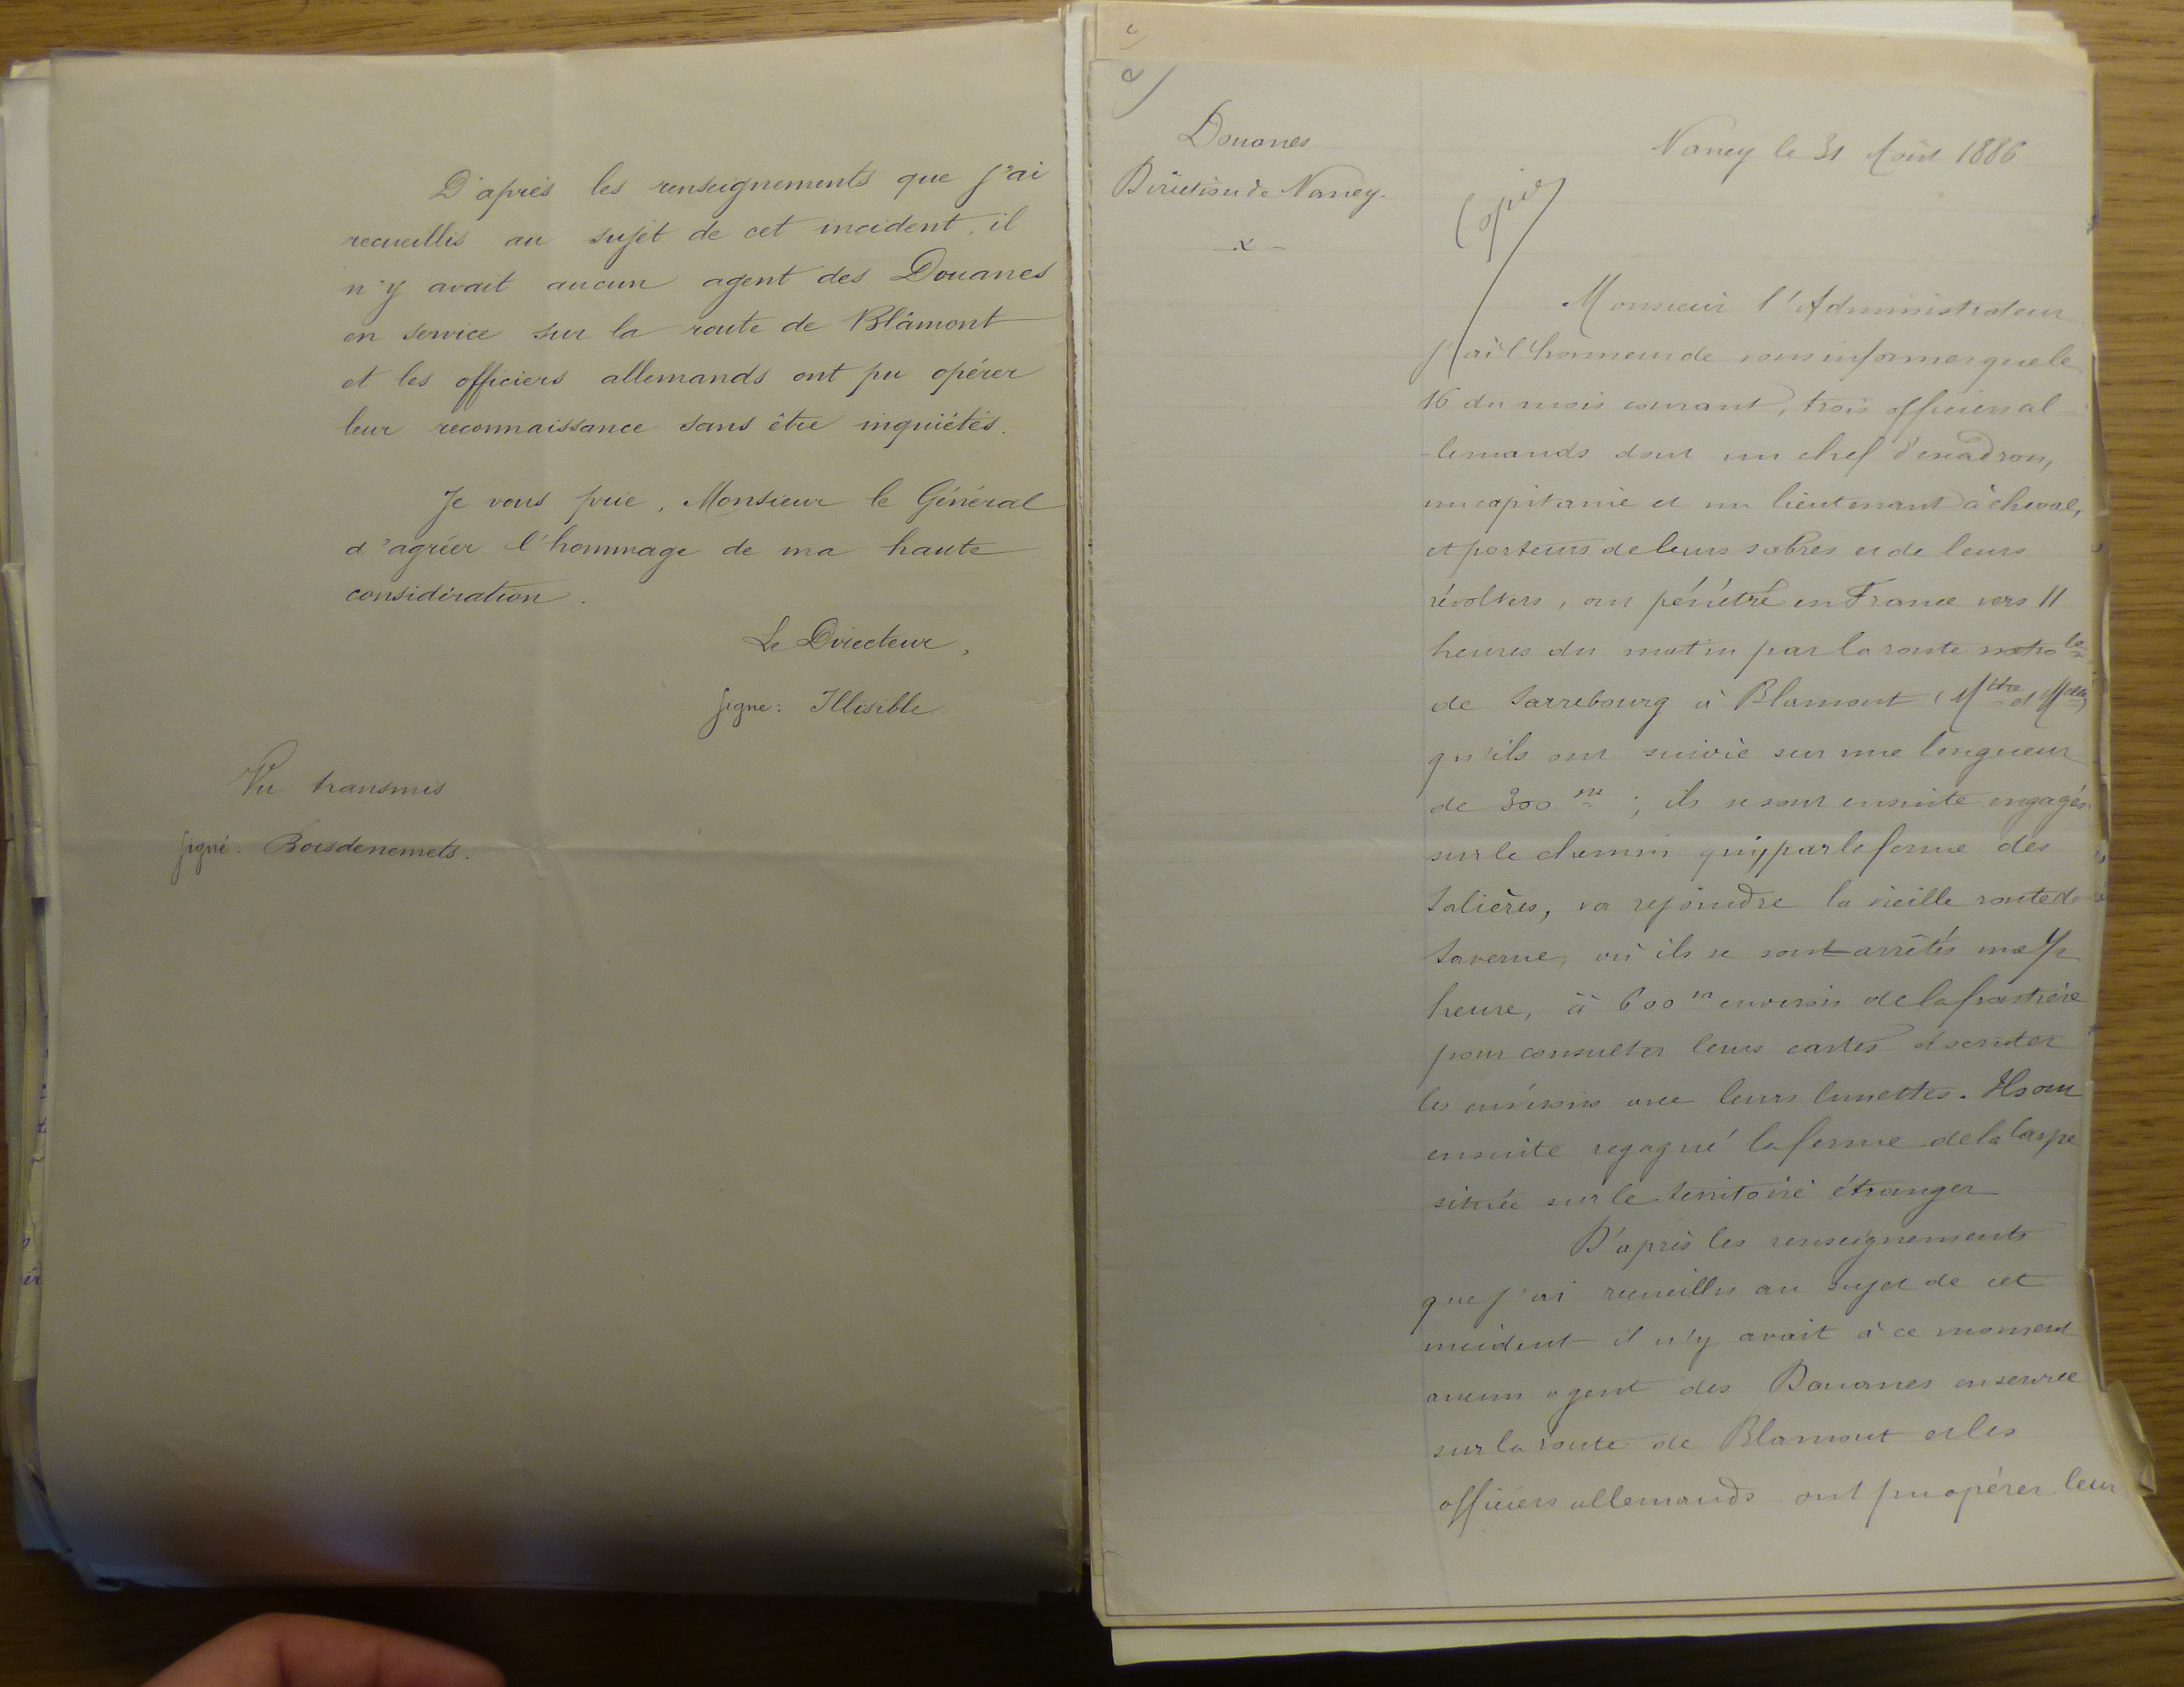 D'après les renseignements que j'ai
recueillis au sujet de cet incident, il
n'y avait aucun agent des Douanes
en service sur la route de Blâmont
et les officiers allemands ont pu opérer
leur reconnaissance sans être inquiétés.
Je vous prie, Monsieur le Général
d'agréer l'hommage de ma haute
considération.
Le Directeur,
signé: Illisible
Vu transmis
signé: Boisdenemets.
Douanes
Direction de Nancy.
Nancy le 31 Août 1886
Copie
Monsieur l'Administrateur
j'ai l'honneur de vous informer que le
16 du mois courant, trois officiers al
-lemands dont un chef d'escadron,
un capitaine et un lieutenant à cheval,
et porteurs de leurs sabres et de leurs
révolvers, ont pénétré en France vers 11
heures du matin par la route natio le
de Sarrebourg à Blamont (Mthe et Melle)
qu'ils ont suivie sur une longueur
de 300 m; ils se sont ensuite engagés
sur le chemin qui, par la ferme des
Salières, va rejoindre la vieille route de
Saverne, où ils se sont arrêtés une 1/2
heure, à 600 m environ de la frontière
pour consulter leurs cartes et scruter
les environs avec leurs lunettes. Ils ont
ensuite regagné la ferme de la
située sur le territoire étranger
D'après les renseignements
que j'ai recueillis au sujet de cet
incident il n'y avait à ce moment
aucun agent des Douanes en service
sur la route de Blamont et les
officiers allemands ont pu opérer leur